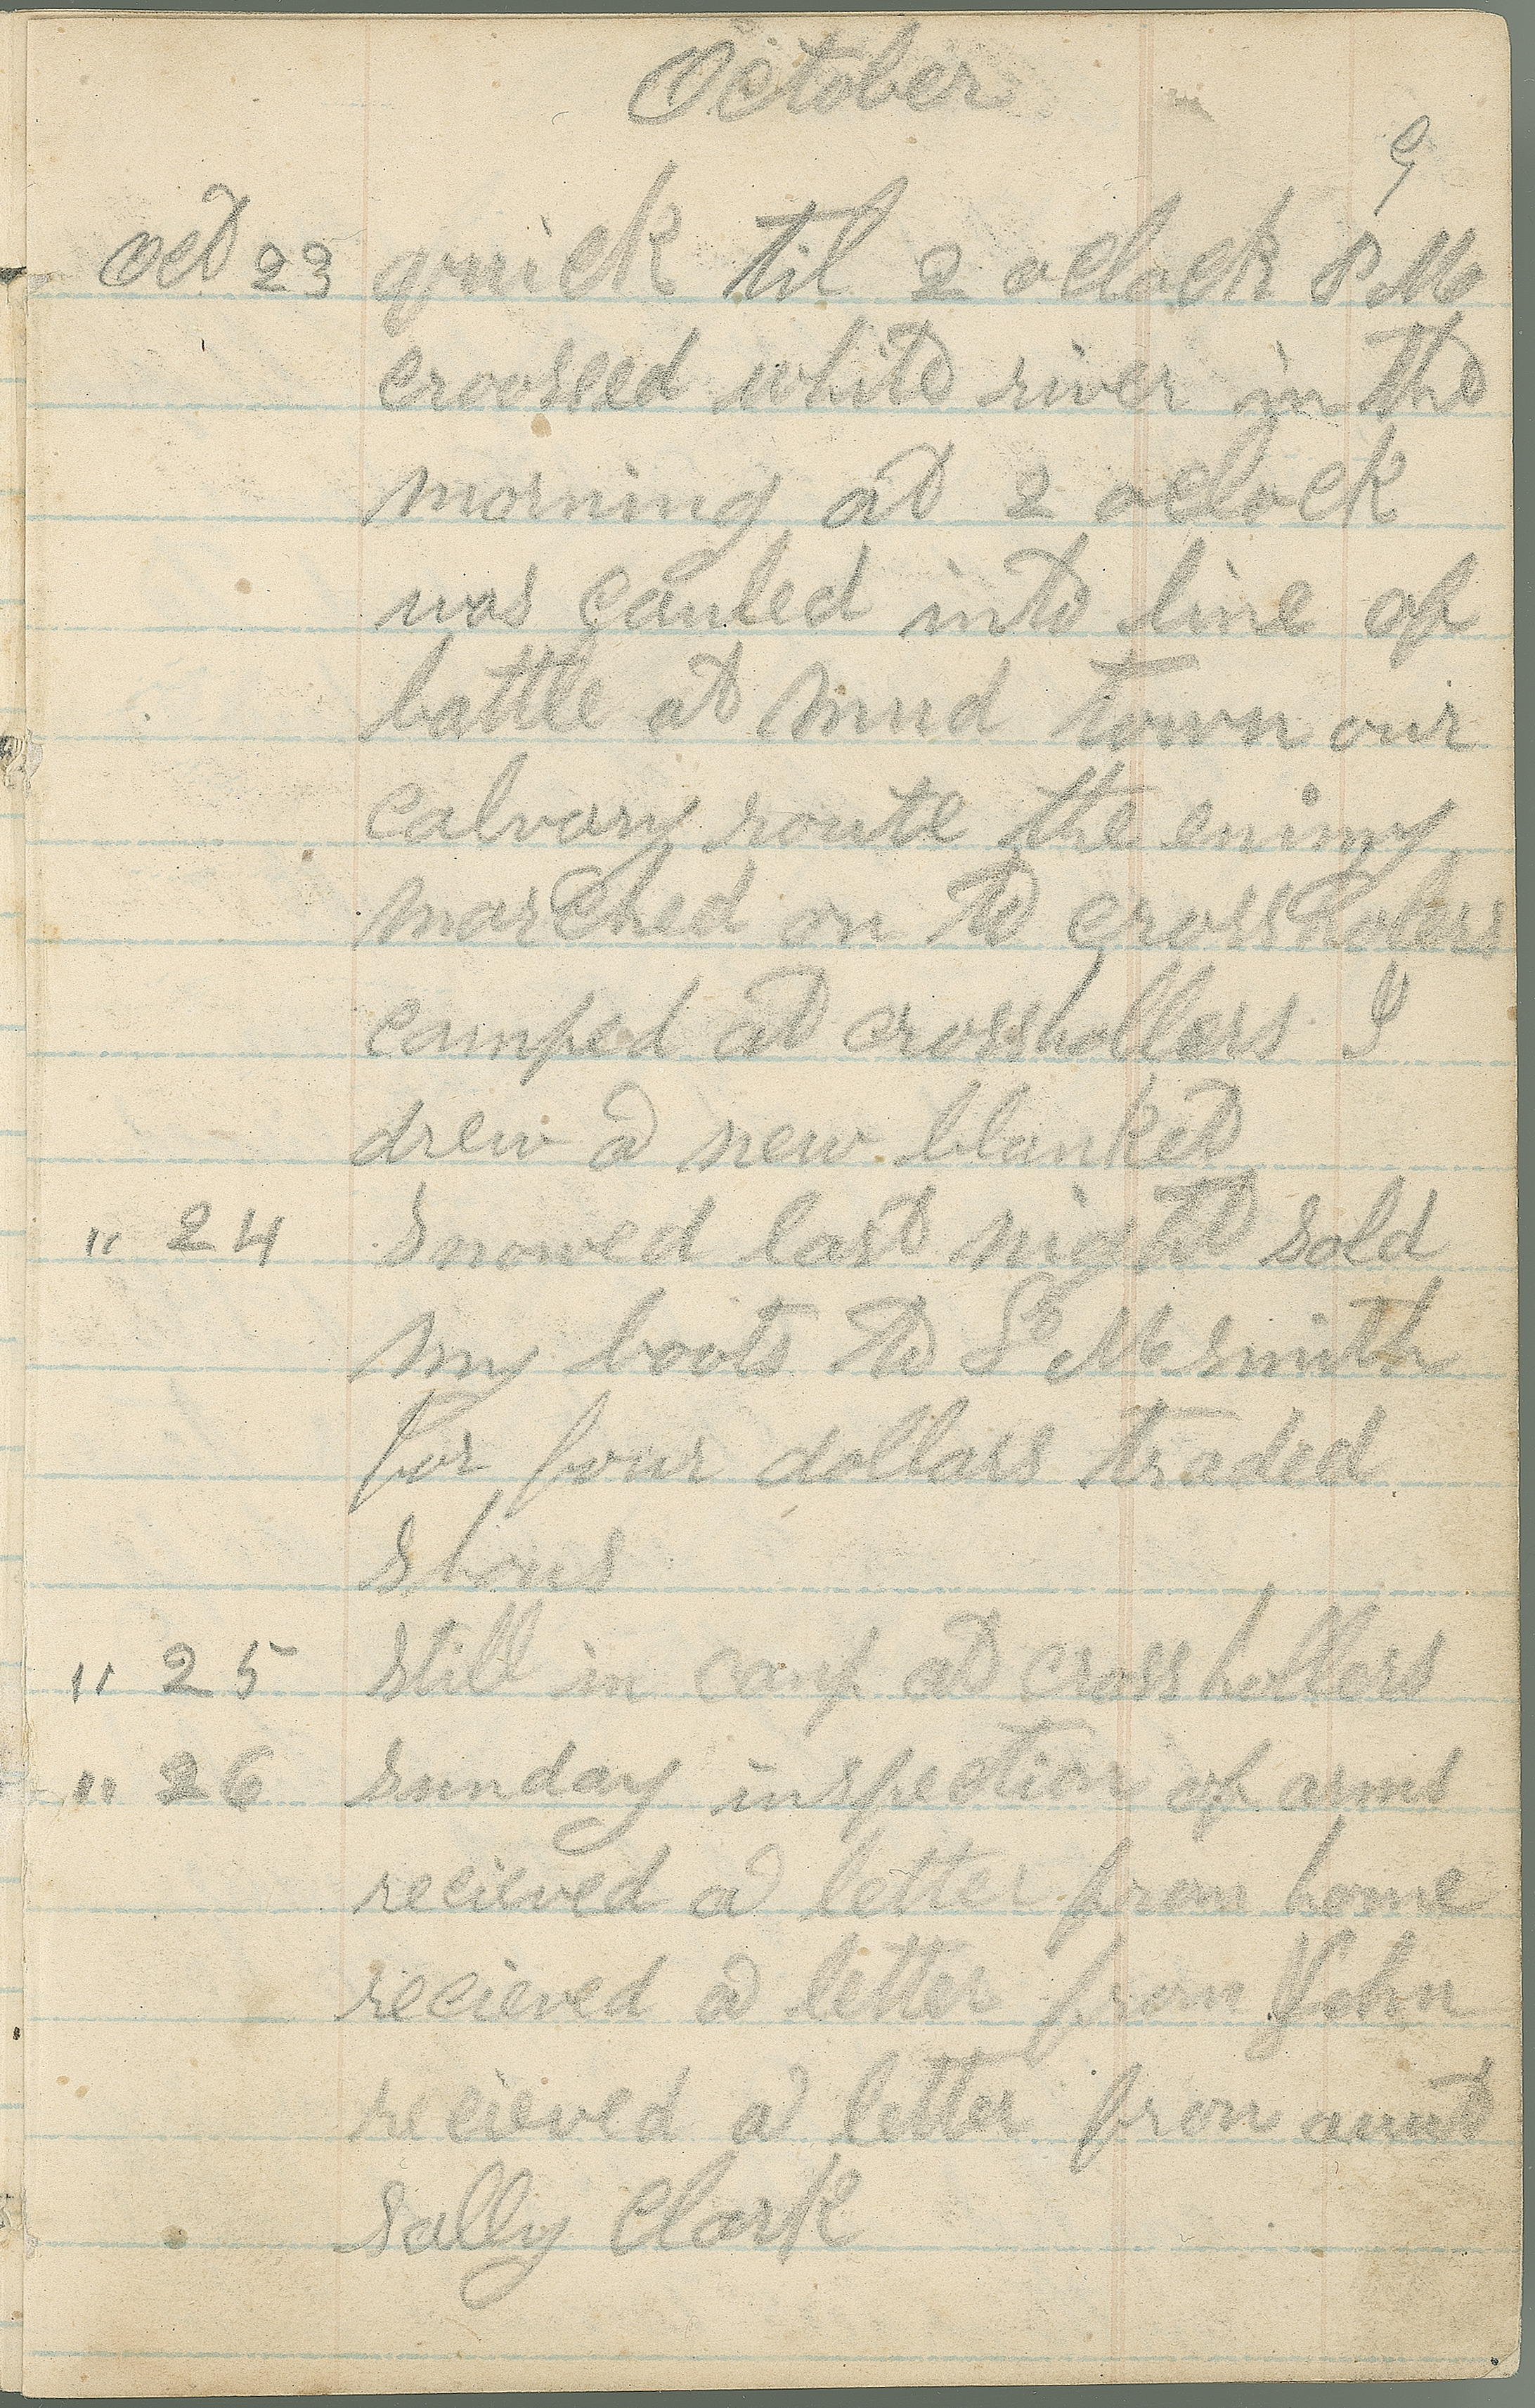 October
9
Oct 23 quick til 2 oclock P M
croossed white river in the
morning at 2 oclock
was cauled into line of
battle at mud town our
calvary route the enimy
marched on to crosshollers
camped at crosshollers I
drew a new blanket
" 24 Snowed last night sold
my boots to S M smith
for four dollars traded
shous
" 25 still in camp at cross hollers
" 26 sunday inspection of arms
recieved a letter from home
recieved a letter from John
recieved a letter from aunt
Sally Clark